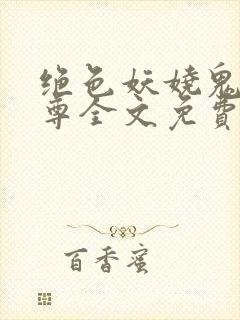 绝色妖娆鬼
尊全文免費
百香蜜